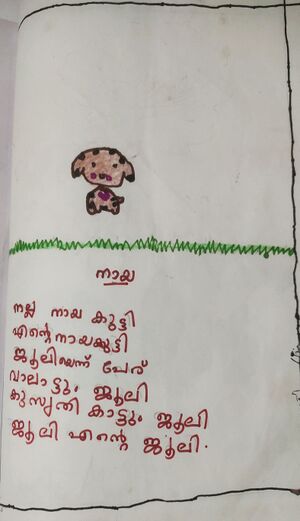 നായ
നല്ല നായ കുട്ടി
എന്റെ നായക്കുട്ടി
ജൂലിയെന്ന് പേര്
വാലാട്ടും ജൂലി
കുസൃതി കാട്ടും ജൂലി
ജൂലി എന്റെ ജൂലി.